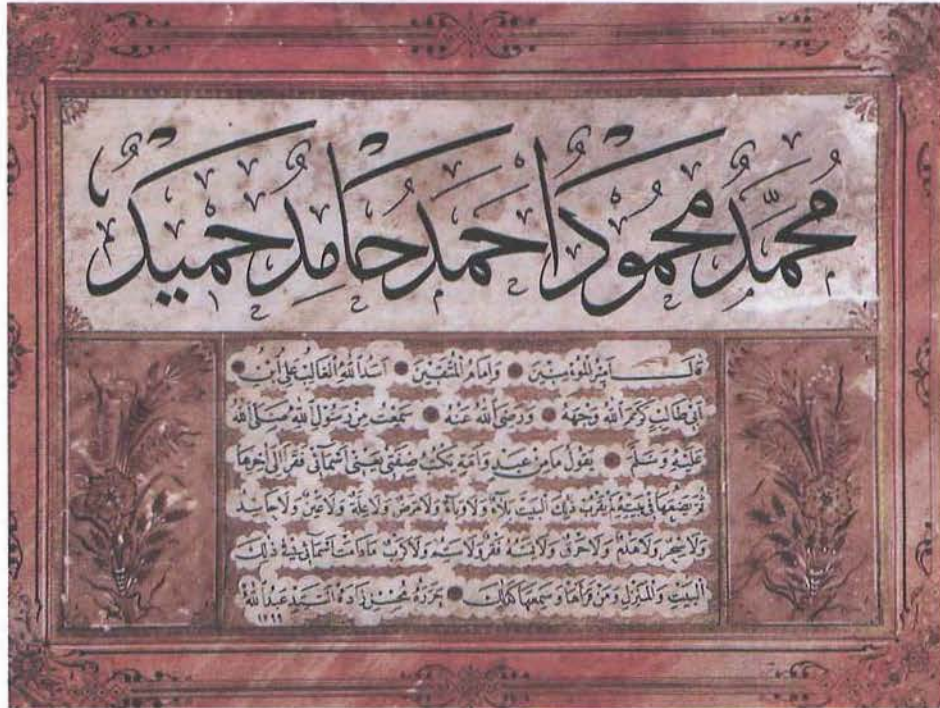 مُحَمَّدٌ مَحْمُودٌ اَحْمَدُ حَامِدٌ حَمِيدٌ
قَالَ اَمِيرُ الْمُؤْمِنِينَ وَاِمَامُ الْمُتَّقِينَ اَسَدُ اللهِ الْغَالِبُ عَلِىُّ ابْنُ
اَبِى طَالِبٍ كَرَّمَ اللهُ وَجْهَهُ وَرَضِىَ اللهُ عَنْهُ سَمِعْتُ مِنْ رَسُولِ اللهِ صَلَّى اللهُ
عَلَيْهِ وَسَلَّمَ يَقُولُ مَا مِنْ عَبْدٍ وَاَمَةٍ يَكْتُبُ صِفَتِى يَعْنِى اَسْمَائِى فَقَرَأَ اِلَى اٰخِرِهَا
ثُمَّ يَضَعُهَا فِى بَيْتِهِ لَمْ يَقْرُبْ ذٰلِكَ الْبَيْتَ بَلَاءٌ وَلَا وَبَاءٌ وَلَا مَرَضٌ وَلَا عِلَّةٌ وَلَا عَيْنٌ وَلَا حَاسِدٌ
وَلَا سِحْرٌ وَلَا هَدْمٌ وَلَا حَرْقٌ وَلَا فَقْرٌ وَلَا كَرْبٌ مَا دَامَتْ اَسْمَائِى فِى ذٰلِكَ
الْبَيْتِ وَالْمَنْزِلِ وَمَنْ قَرَأَهَا وَسَمِعَهَا كَذٰلِكَ حَرَّرَهُ مُحْسِنْ زَادَه اَلسَّيِّدْ عَبْدُ اللهْ
١٢٩٩